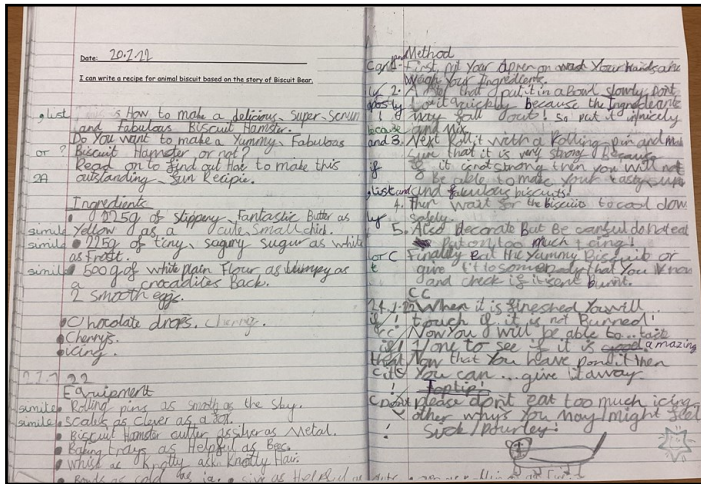 Date: 20.1.22
I can write a recipe for animal biscuit based on the story of Biscuit Bear.
, list How to make a delicious, Super, Scrum
and Fabulous Biscuit Hamster.
Do You want to make a Yummy, Fabulous
or ? Biscuit Hamster or not?
Read on to find out How to make this
2A outstanding, fun Recipie.
Ingredients
225g of Slippery, Fantastic Butter as
simile Yellow as a cute, Small chick.
simile 225g of tiny, sugary sugur as white
as Frost.
simile 500g of white plain Flour as blumpey as
a crocadiles Back.
2 smooth eggs.
Chocolate drops. Cherrys.
Cherrys.
Icing.
27.1.22
Equipment
simile Rolling pins as smooth as the sky.
simile scales as clever as a fox.
Biscuit Hamster cutter as silver as Metal.
Baking trays as Helpful as Bees.
whisk as Knotty as Knotty Hair.
Bowls as cold as ice.
Method
1. First, put Your Apron on Your hands and
weigh Your Ingredients.
ly 2. After that put it in a Bowl slowly Dont
it quickly because the Ingredients
! may fall out! so put it in nicely
and mix.
and 3. Next Roll it with a Rolling pin and
sure that it is very strong because
if it isnt strong then you will not
be able to make your tasty, yum
, list and and fabulous biscuits!
4. Then wait for the biscuits to cool down
ly safely.
5. Also Decorate But Be careful do not eat
Put on too much icing!
or C Finally Eat the Yummy Biscuit or
give it to somebody that You Know
and check if it isent burnt.
CC
24.1.22 When it is finished You will
if ! touch if it is not Burned!
Now You will be able to... taste
if! 1/one to see if it is good amazing
that Now that You Have done it then
You can... give it away
! Top tip!
C Dont please dont eat too much icing
other whys You may/might feel
! Sick/pourley!